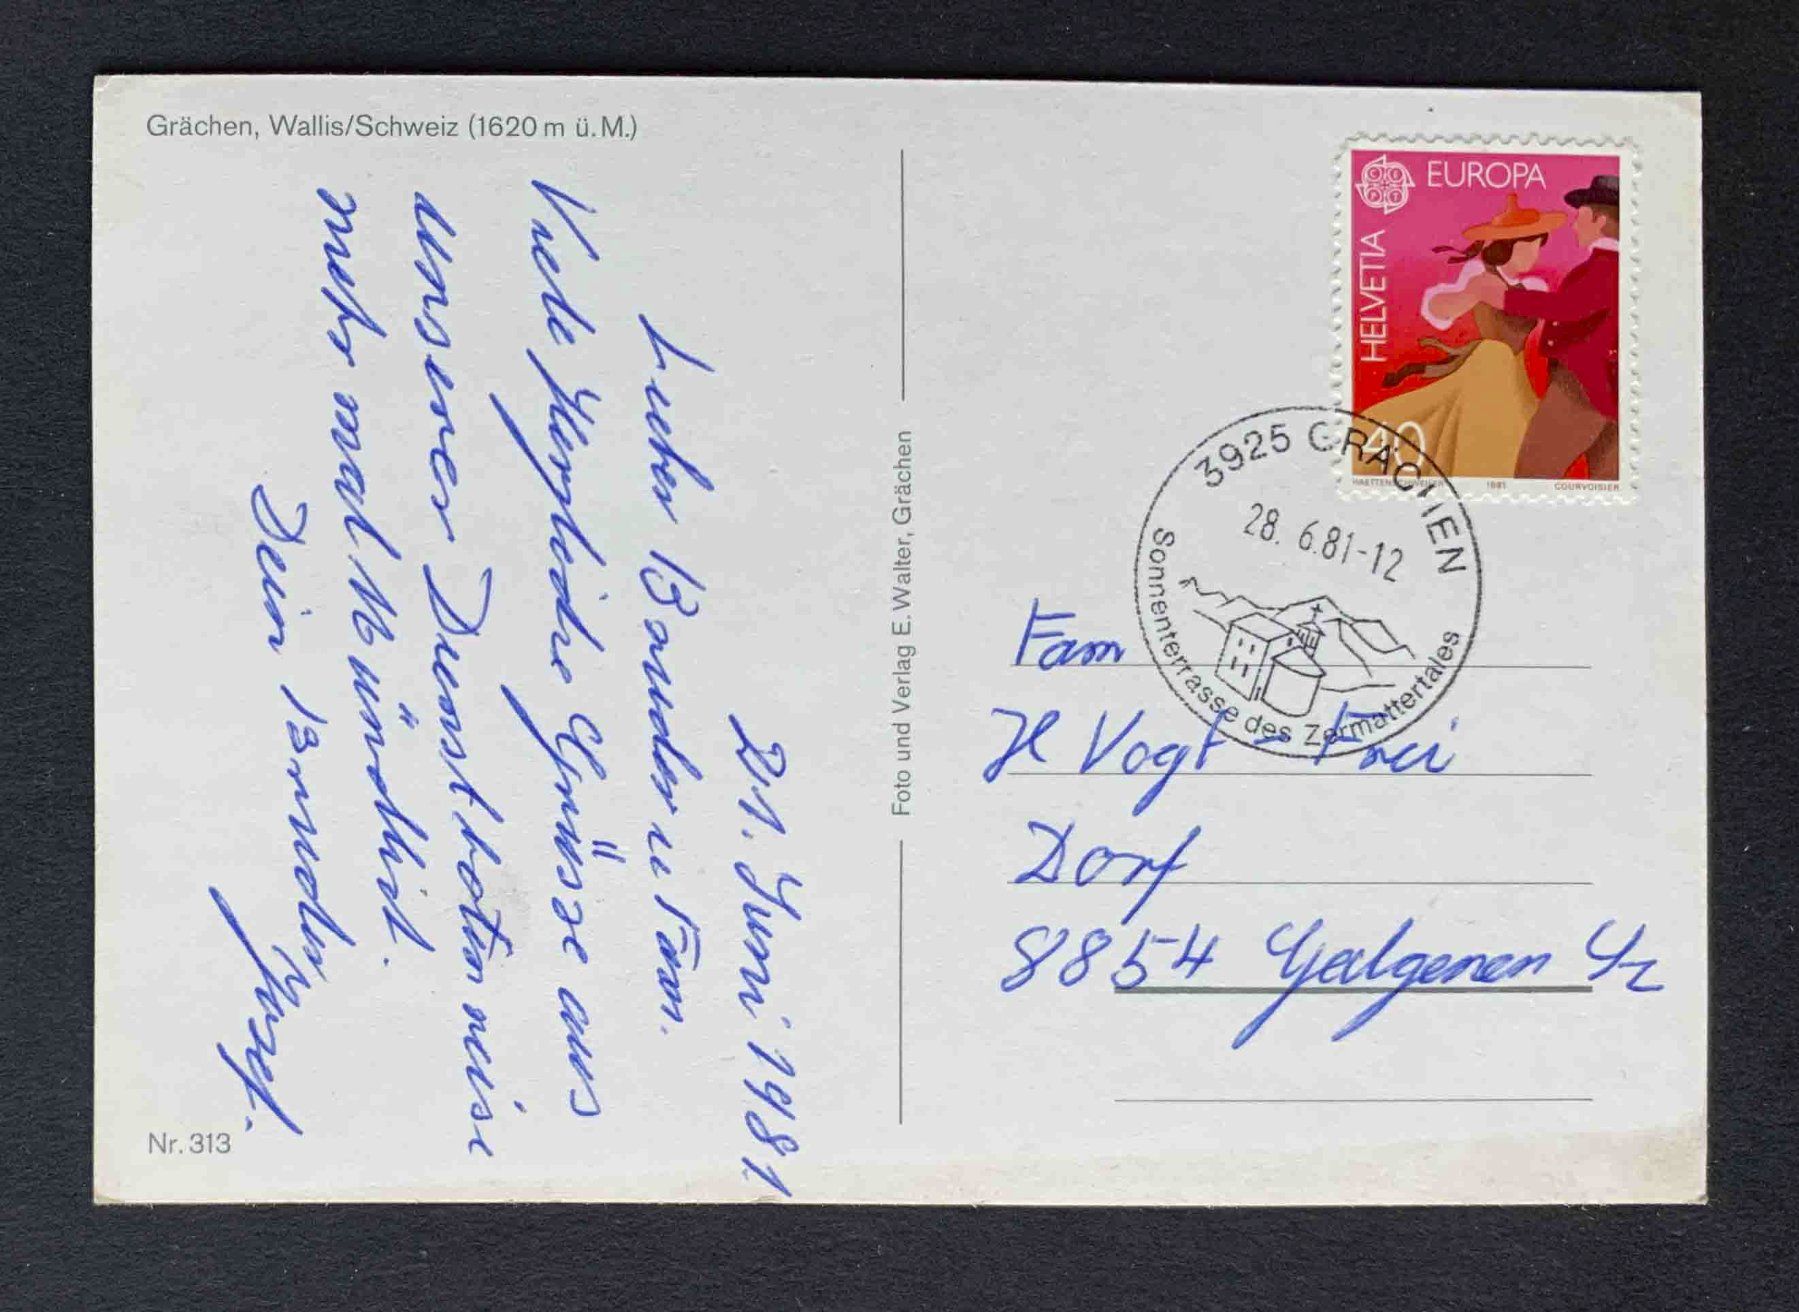 Grächen, Wallis/Schweiz (1620 m ü. M.)
21. Juni 1981
Lieber Bruder u Fam.
Viele Herzliche Grüsze aus
unserer Dienstbotenreise
mehr mal Mündlich.
Dein Bruder
Josef.
Nr. 313
Foto und Verlag E. Walter, Grächen
EUROPA
CEPT
HELVETIA
40
HAETTENSCHWEILER 1981 COURVOISIER
3925 GRÄCHEN
28. 6.81-12
Sonnenterrasse des Zermattertales
Fam
H Vogt - Frei
Dorf
8854 Galgenen Sz